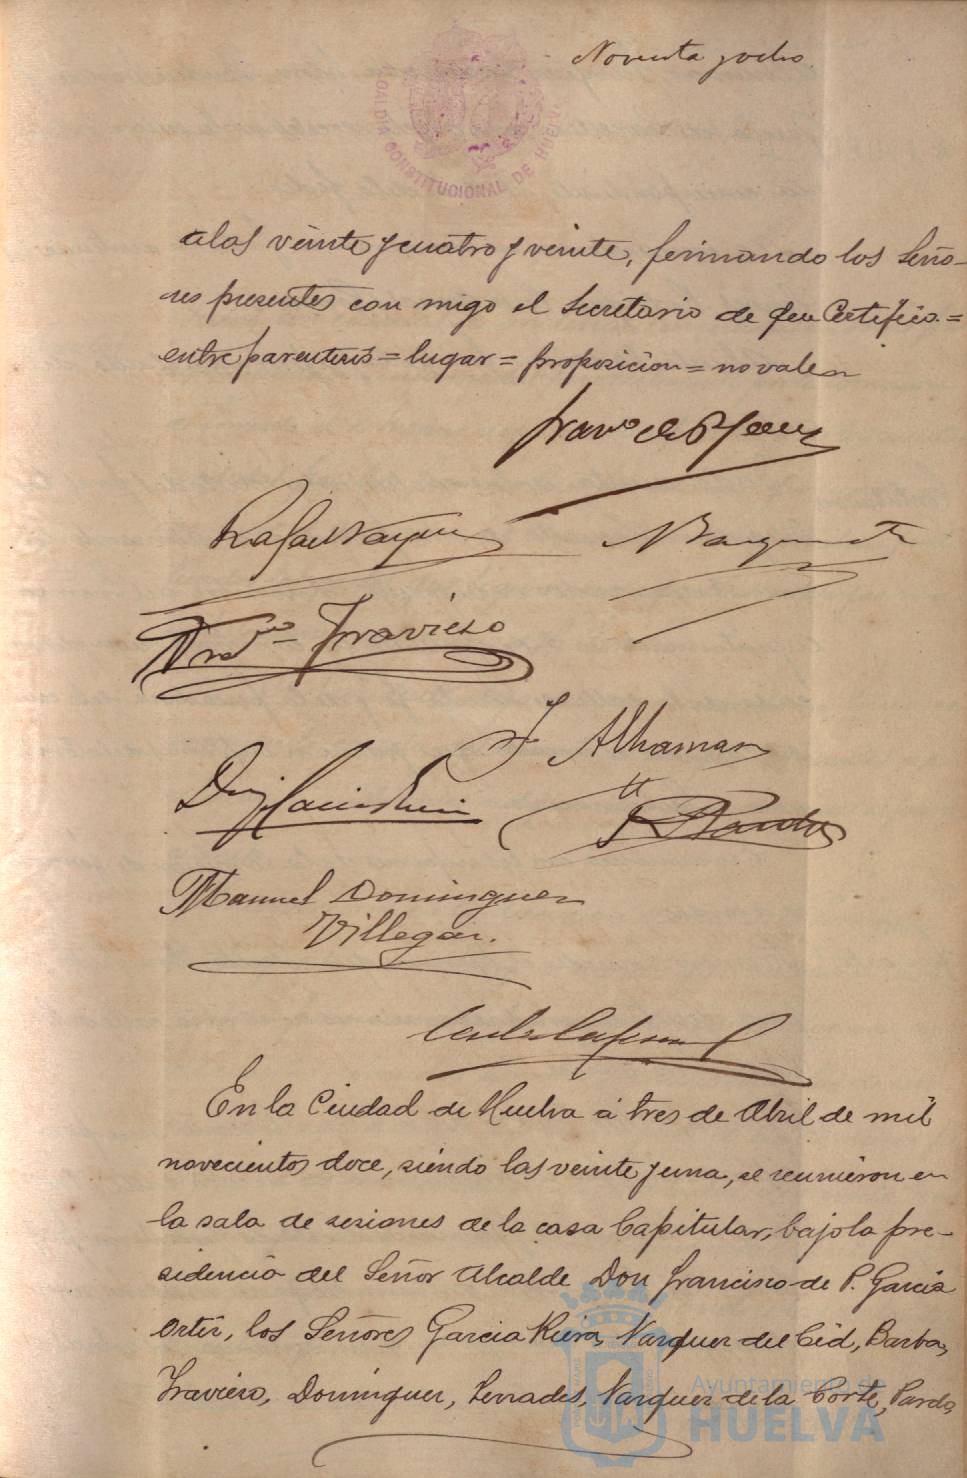 Noventa y ocho
ALCALDIA CONSTITUCIONAL DE HUELVA
alas veinte y cuatro y veinte, firmando los Seño-
res presentes con migo el Secretario de que Certifico.=
entre parentesis = lugar = proposicion = no valen
Rafael Vazquez
Travieso
J Alhaman
Manuel Dominguez
Villegas.
En la Ciudad de Huelva á tres de Abril de mil
novecientos doce, siendo las veinte y una, se reunieron en
la sala de sesiones de la casa Capitular, bajo la pre-
sidencia del Señor Alcalde Don Francisco de P. Garcia
Ortiz, los Señores Garcia Riera, Vazquez del Cid, Barba,
Travieso, Dominguez, Terrades, Vazquez de la Corte, Pardo,
Ayuntamiento de
HUELVA